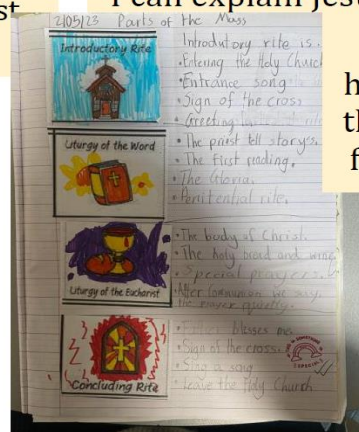 st
I can explain Jest
h
th
f
2/05/23 Parts of the Mass
Introductory Rite
Introdutory rite is.
• Entering the Holy Church
• Entrance song
• Sign of the cross
• Greeting
Liturgy of the Word
• The priest tell story's.
• The First reading.
• The Gloria.
• Penitential rite.
Liturgy of the Eucharist
• The body of Christ.
• The holy bread and wine
• Special prayers.
• After Communion we say
the prayer quietly.
Concluding Rite
• blesses me.
• Sign of the cross.
• Sing a song
• Leave the Holy Church.
SOMETHING
SPECIAL